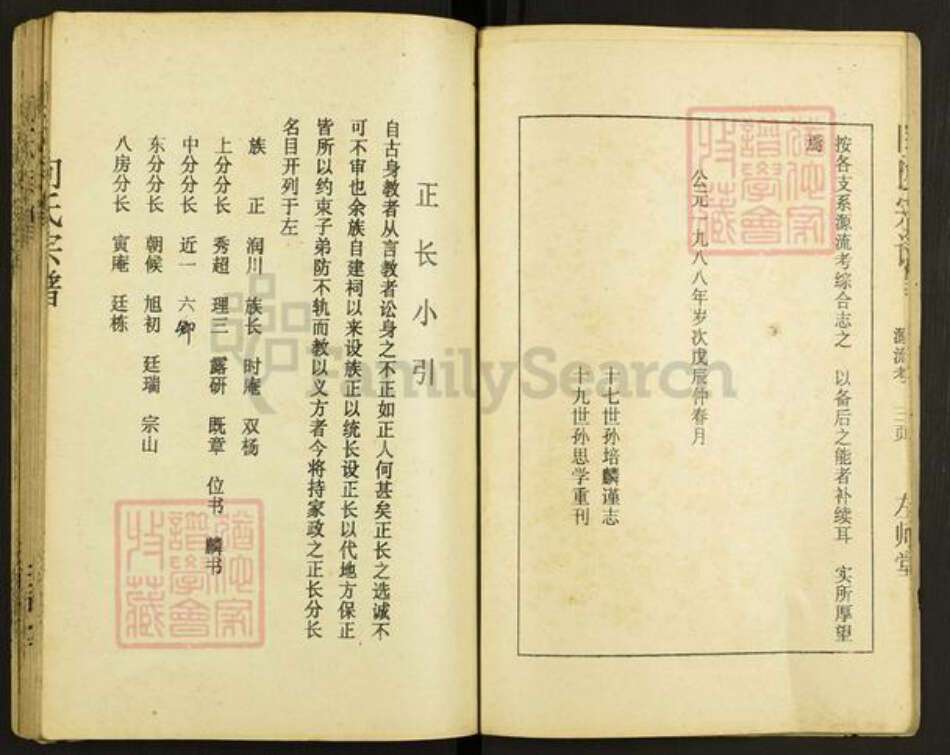 按各支系源流考综合志之 以备后之能者补续耳 实所厚望
焉
公元一九八八年岁次戊辰仲春月
十七世孙培麟谨志
十九世孙思学重刊
源流考 三页
左帅堂
正长小引
自古身教者从言教者讼身之不正如正人何甚矣正长之选诚不
可不审也余族自建祠以来设族正以统长设正长以代地方保正
皆所以约束子弟防不轨而教以义方者今将持家政之正长分长
名目开列于左
族 正 润川 族长 时庵 双杨
上分分长 秀超 理三 露研 既章 位书 麟书
中分分长 近一 六卿
东分分长 朝候 旭初 廷瑞 宗山
八房分长 寅庵 廷栋
氏宗谱
FamilySearch